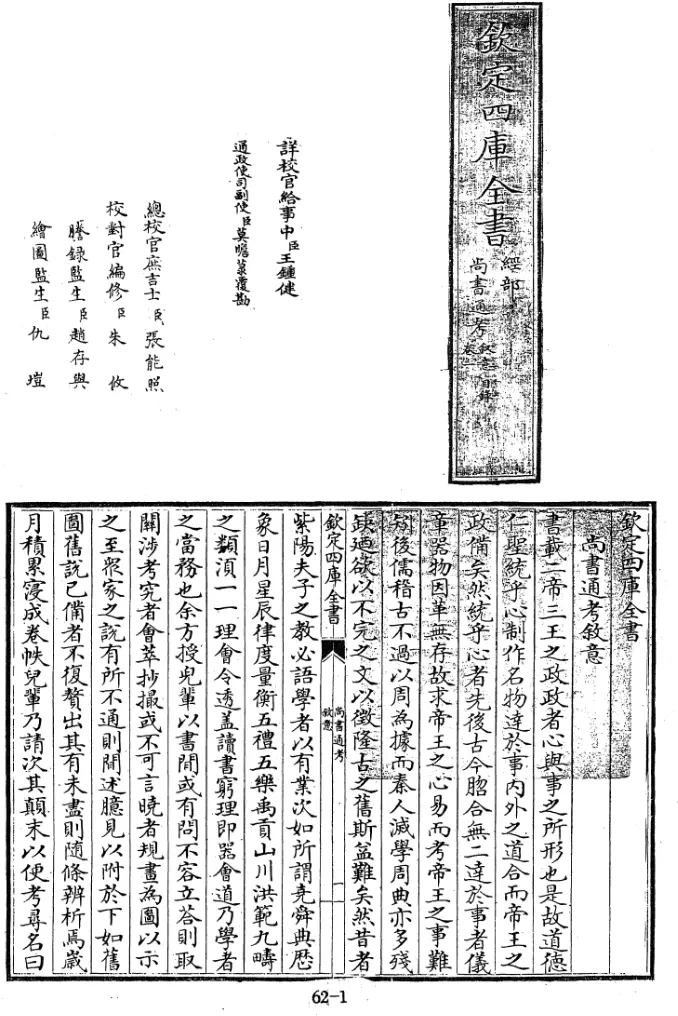 欽定四庫全書
經部
尚書通考 敘意 目錄 卷一
詳校官給事中臣王鍾健
通政使司副使臣莫瞻菉覆勘
總校官庶吉士臣張能照
校對官編修臣朱攸
謄錄監生臣趙存與
繪圖監生臣仇塏
欽定四庫全書
尚書通考敘意
書載二帝三王之政政者心與事之所形也是故道德
仁聖統乎心制作名物達於事內外之道合而帝王之
政備矣然統乎心者先後古今脗合無二達於事者儀
章器物因革無存故求帝王之心易而考帝王之事難
矧後儒稽古不過以周為據而秦人滅學周典亦多殘
缺廼欲以不完之文以徵隆古之舊斯益難矣然昔者
欽定四庫全書
尚書通考
敘意
一
紫陽夫子之教必語學者以有業次如所謂堯舜典厯
象日月星辰律度量衡五禮五樂禹貢山川洪範九疇
之類須一一理會令透盖讀書窮理即器會道乃學者
之當務也余方授兒輩以書間或有問不容立荅則取
關涉考究者會萃抄撮或不可言曉者規畫為圖以示
之至衆家之說有所不通則間述臆見以附於下如舊
圖舊說已備者不復贅出其有未盡則隨條辨析焉歲
月積累寖成卷帙兒輩乃請次其顛末以便考尋名曰
62-1